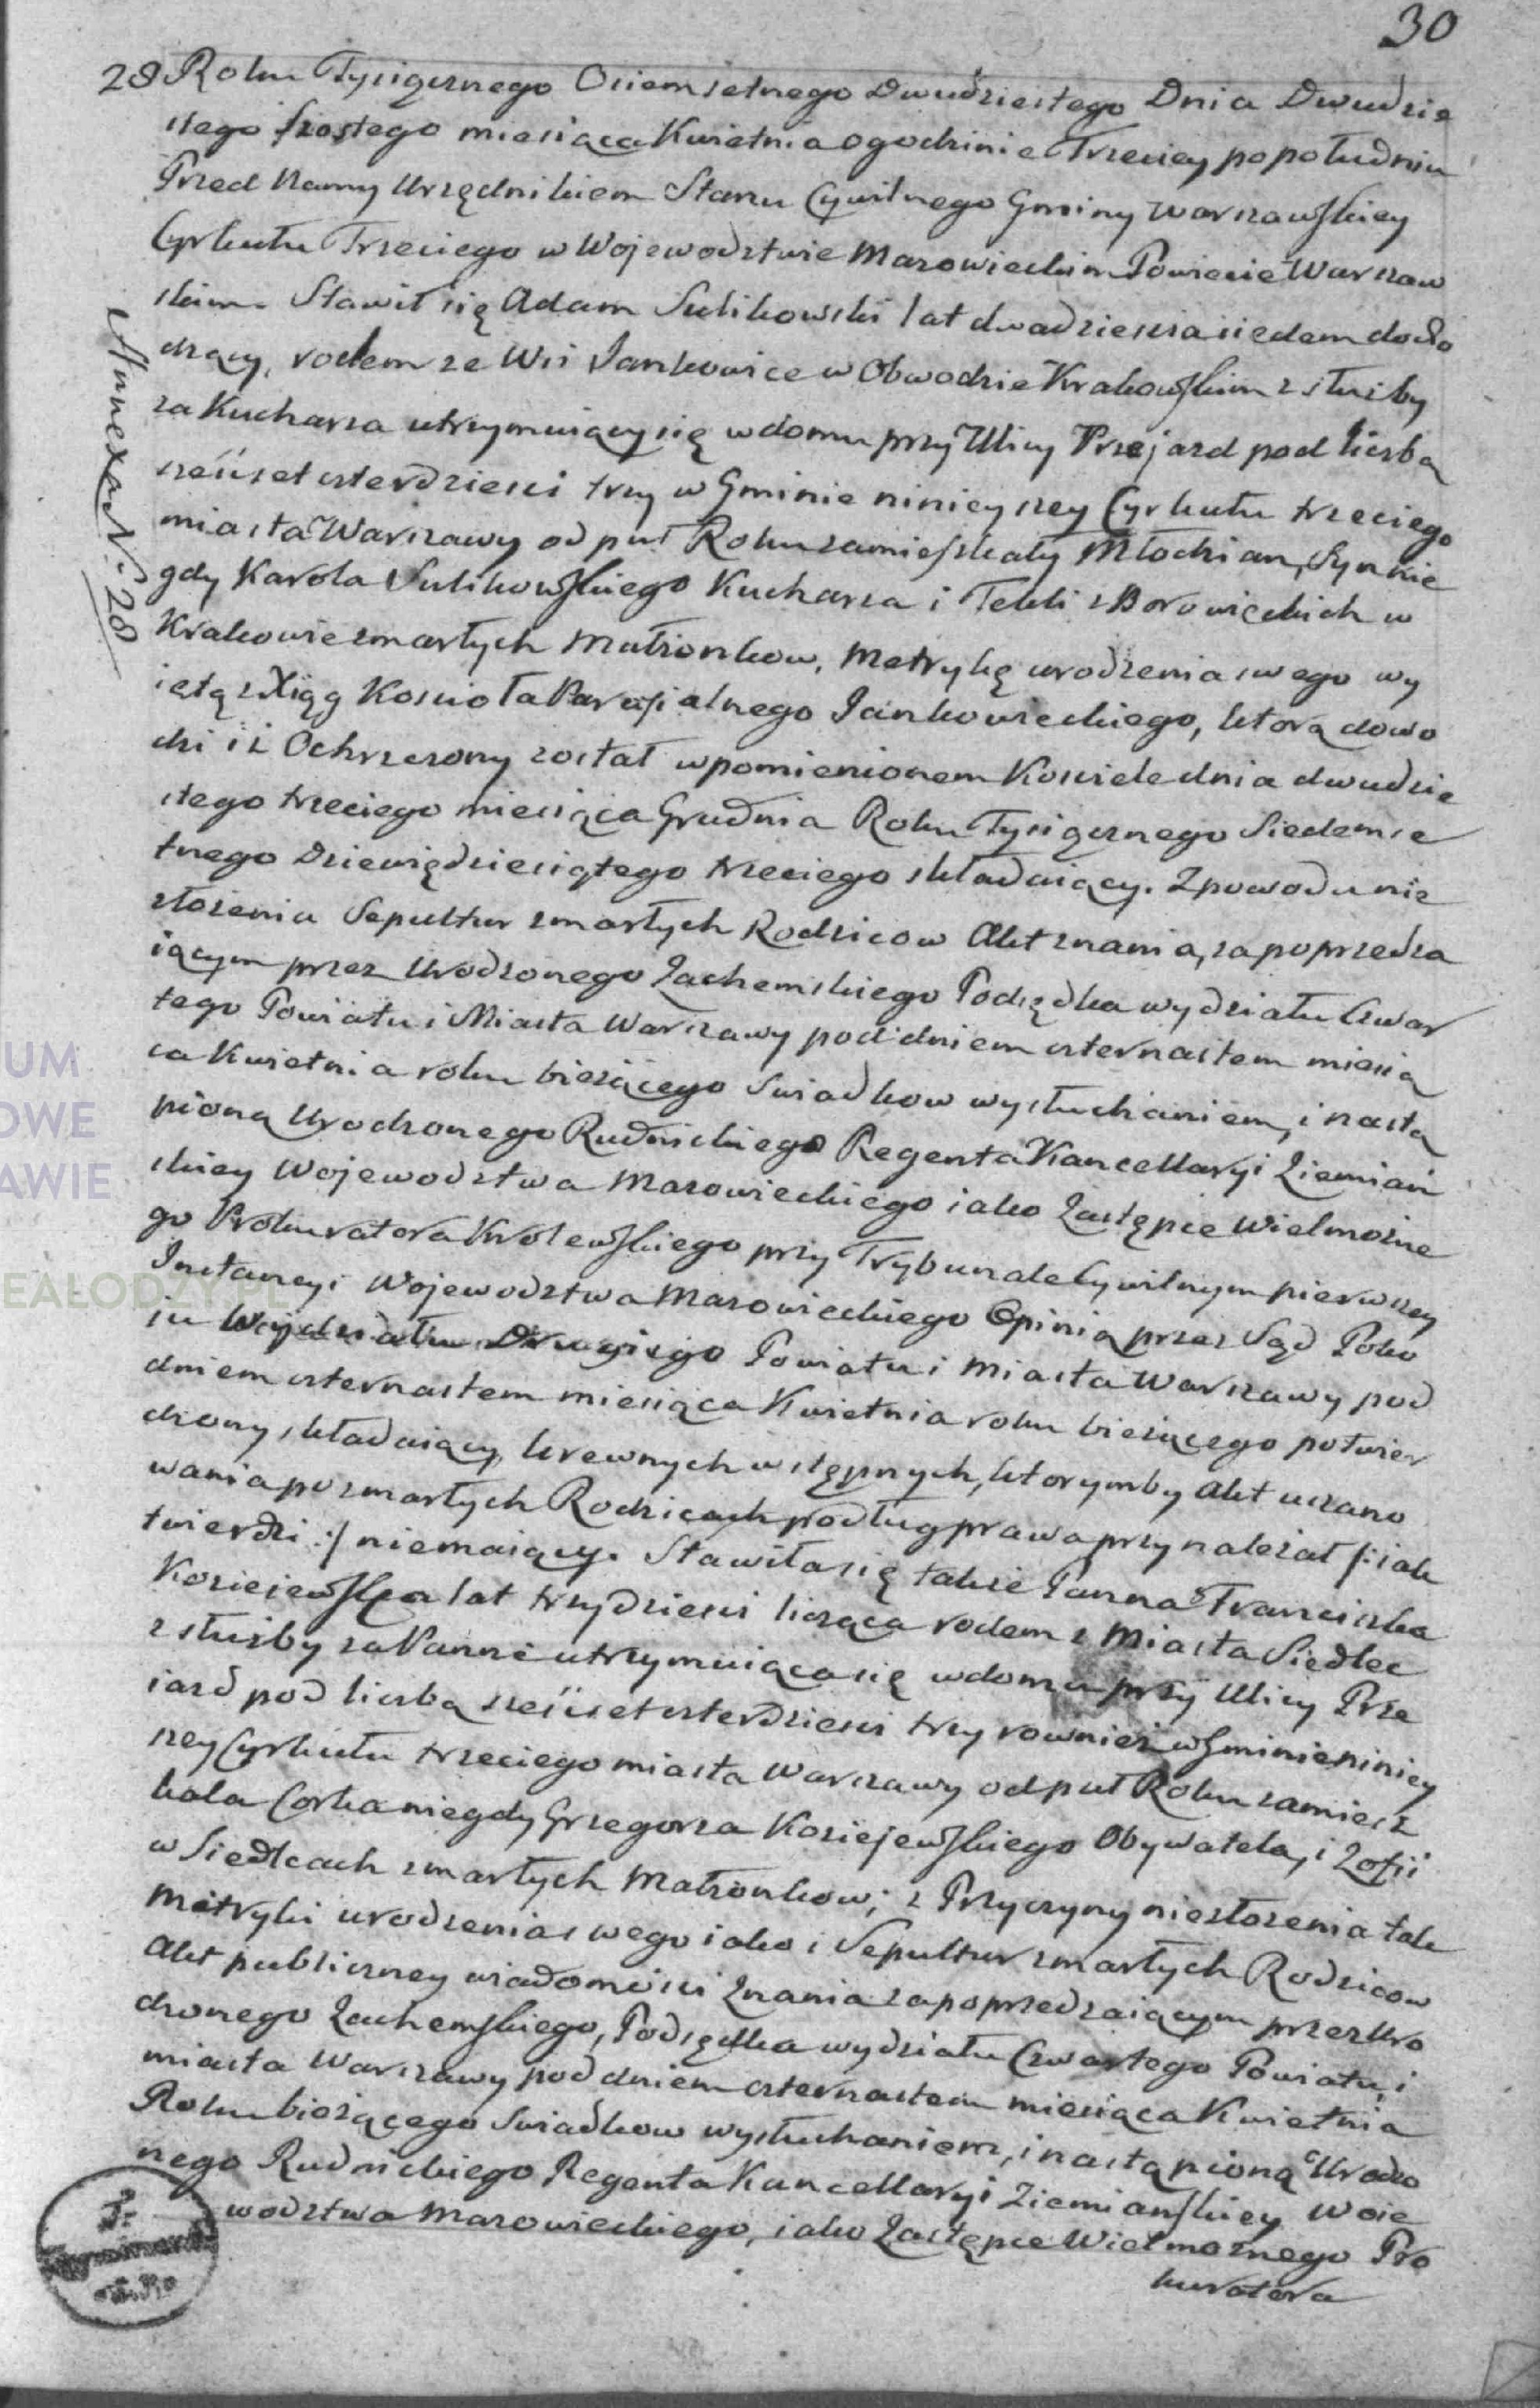 30
28 Roku Tysiącznego Ośiemsetnego Dwudziestego Dnia Dwudzie
stego szostego miesiąca Kwietnia o godzinie Trzeciey po południu
Przed Namy Urzędnikiem Stanu Cywilnego Gminy Warszawskiey
Cyrkułu Trzeciego w Wojewodztwie Mazowieckim Powiecie Warszaw
skim. Stawił się Adam Sulikowski lat dwadziescia siedem docho
dzący, rodem ze Wsi Jankowice w Obwodzie Krakowskim z służby
za Kucharza utrzymuiący się w domu przy Ulicy Przejazd pod liczbą
sześćset czterdziesci trzy w Gminie ninieyszey Cyrkułu trzeciego
miasta Warszawy od puł Roku zamieszkały Młodzian, Syn nie
gdy Karola Sulikowskiego Kucharza i Tekli z Borowięckich w
Krakowie zmarłych Małżonkow, Metrykę urodzenia swego wy
iętą z Xiąg Koscioła Parafialnego Jankowieckiego, ktora dowo
dzi iż Ochrzczony został wpomienionem Kosciele dnia dwudzie
stego trzeciego miesiąca Grudnia Roku Tysiącznego Siedemse
tnego Dziewiędziesiątego trzeciego składaiący. Z powodu nie
złożenia Sepultur zmarłych Rodzicow Akt znania, za poprzedza
iącym przez Urodzonego Zachemskiego Podsędka wydziału Czwar
tego Powiatu i Miasta Warszawy pod dniem czternastem miesią
ca Kwietnia roku bieżącego Swiadkow wysłuchaniem, i nastą
pioną Urodzonego Rudnickiego Regenta Kancellaryi Ziemiań
skiey Wojewodztwa Mazowieckiego iako Zastępce Wielmożne
go Prokuratora Krolewskiego przy Trybunale Cywilnym pierwszey
Instancyi Wojewodztwa Mazowieckiego Opinią przez Sąd Poko
iu Wydziału Drugiego Powiatu i Miasta Warszawy pod
dniem czternastem miesiąca Kwietnia roku bieżącego potwier
dzony, składaiący, krewnych wstępnych, ktorymby Akt uszano
wania po zmarłych Rodzicach podług prawa przynależał /: iak
twierdzi :/ niemaiący. Stawiła się także Panna Franciszka
Koziejewska lat trzydziesci licząca rodem z Miasta Siedlec
z służby za Pannę utrzymuiąca się w domu przy Ulicy Prze
iazd pod liczbą sześćset czterdziesci trzy rownież w Gminie niniey
szey Cyrkułu trzeciego miasta Warszawy od puł Roku zamiesz
kała Corka niegdy Grzegorza Koziejewskiego Obywatela, i Zofii
w Siedlcach zmarłych Małżonkow; z Przyczyny niezłożenia tak
Metryki urodzenia swego iako i Sepultur zmarłych Rodzicow
Akt publiczney wiadomości Znania za poprzedzaiącym przez Uro
dzonego Zachemskiego, Podsędka wydziału Czwartego Powiatu, i
miasta Warszawy pod dniem czternastem miesiąca Kwietnia
Roku bieżącego Swiadkow wysłuchaniem, i nastąpioną Urodzo
nego Rudnickiego Regenta Kancellaryi Ziemianskiey Woie
wodztwa Mazowieckiego, iako Zastępce Wielmożnego Pro
kuratora
Annexa N: 28
UM
OWE
AWIE
EALODZY.PL